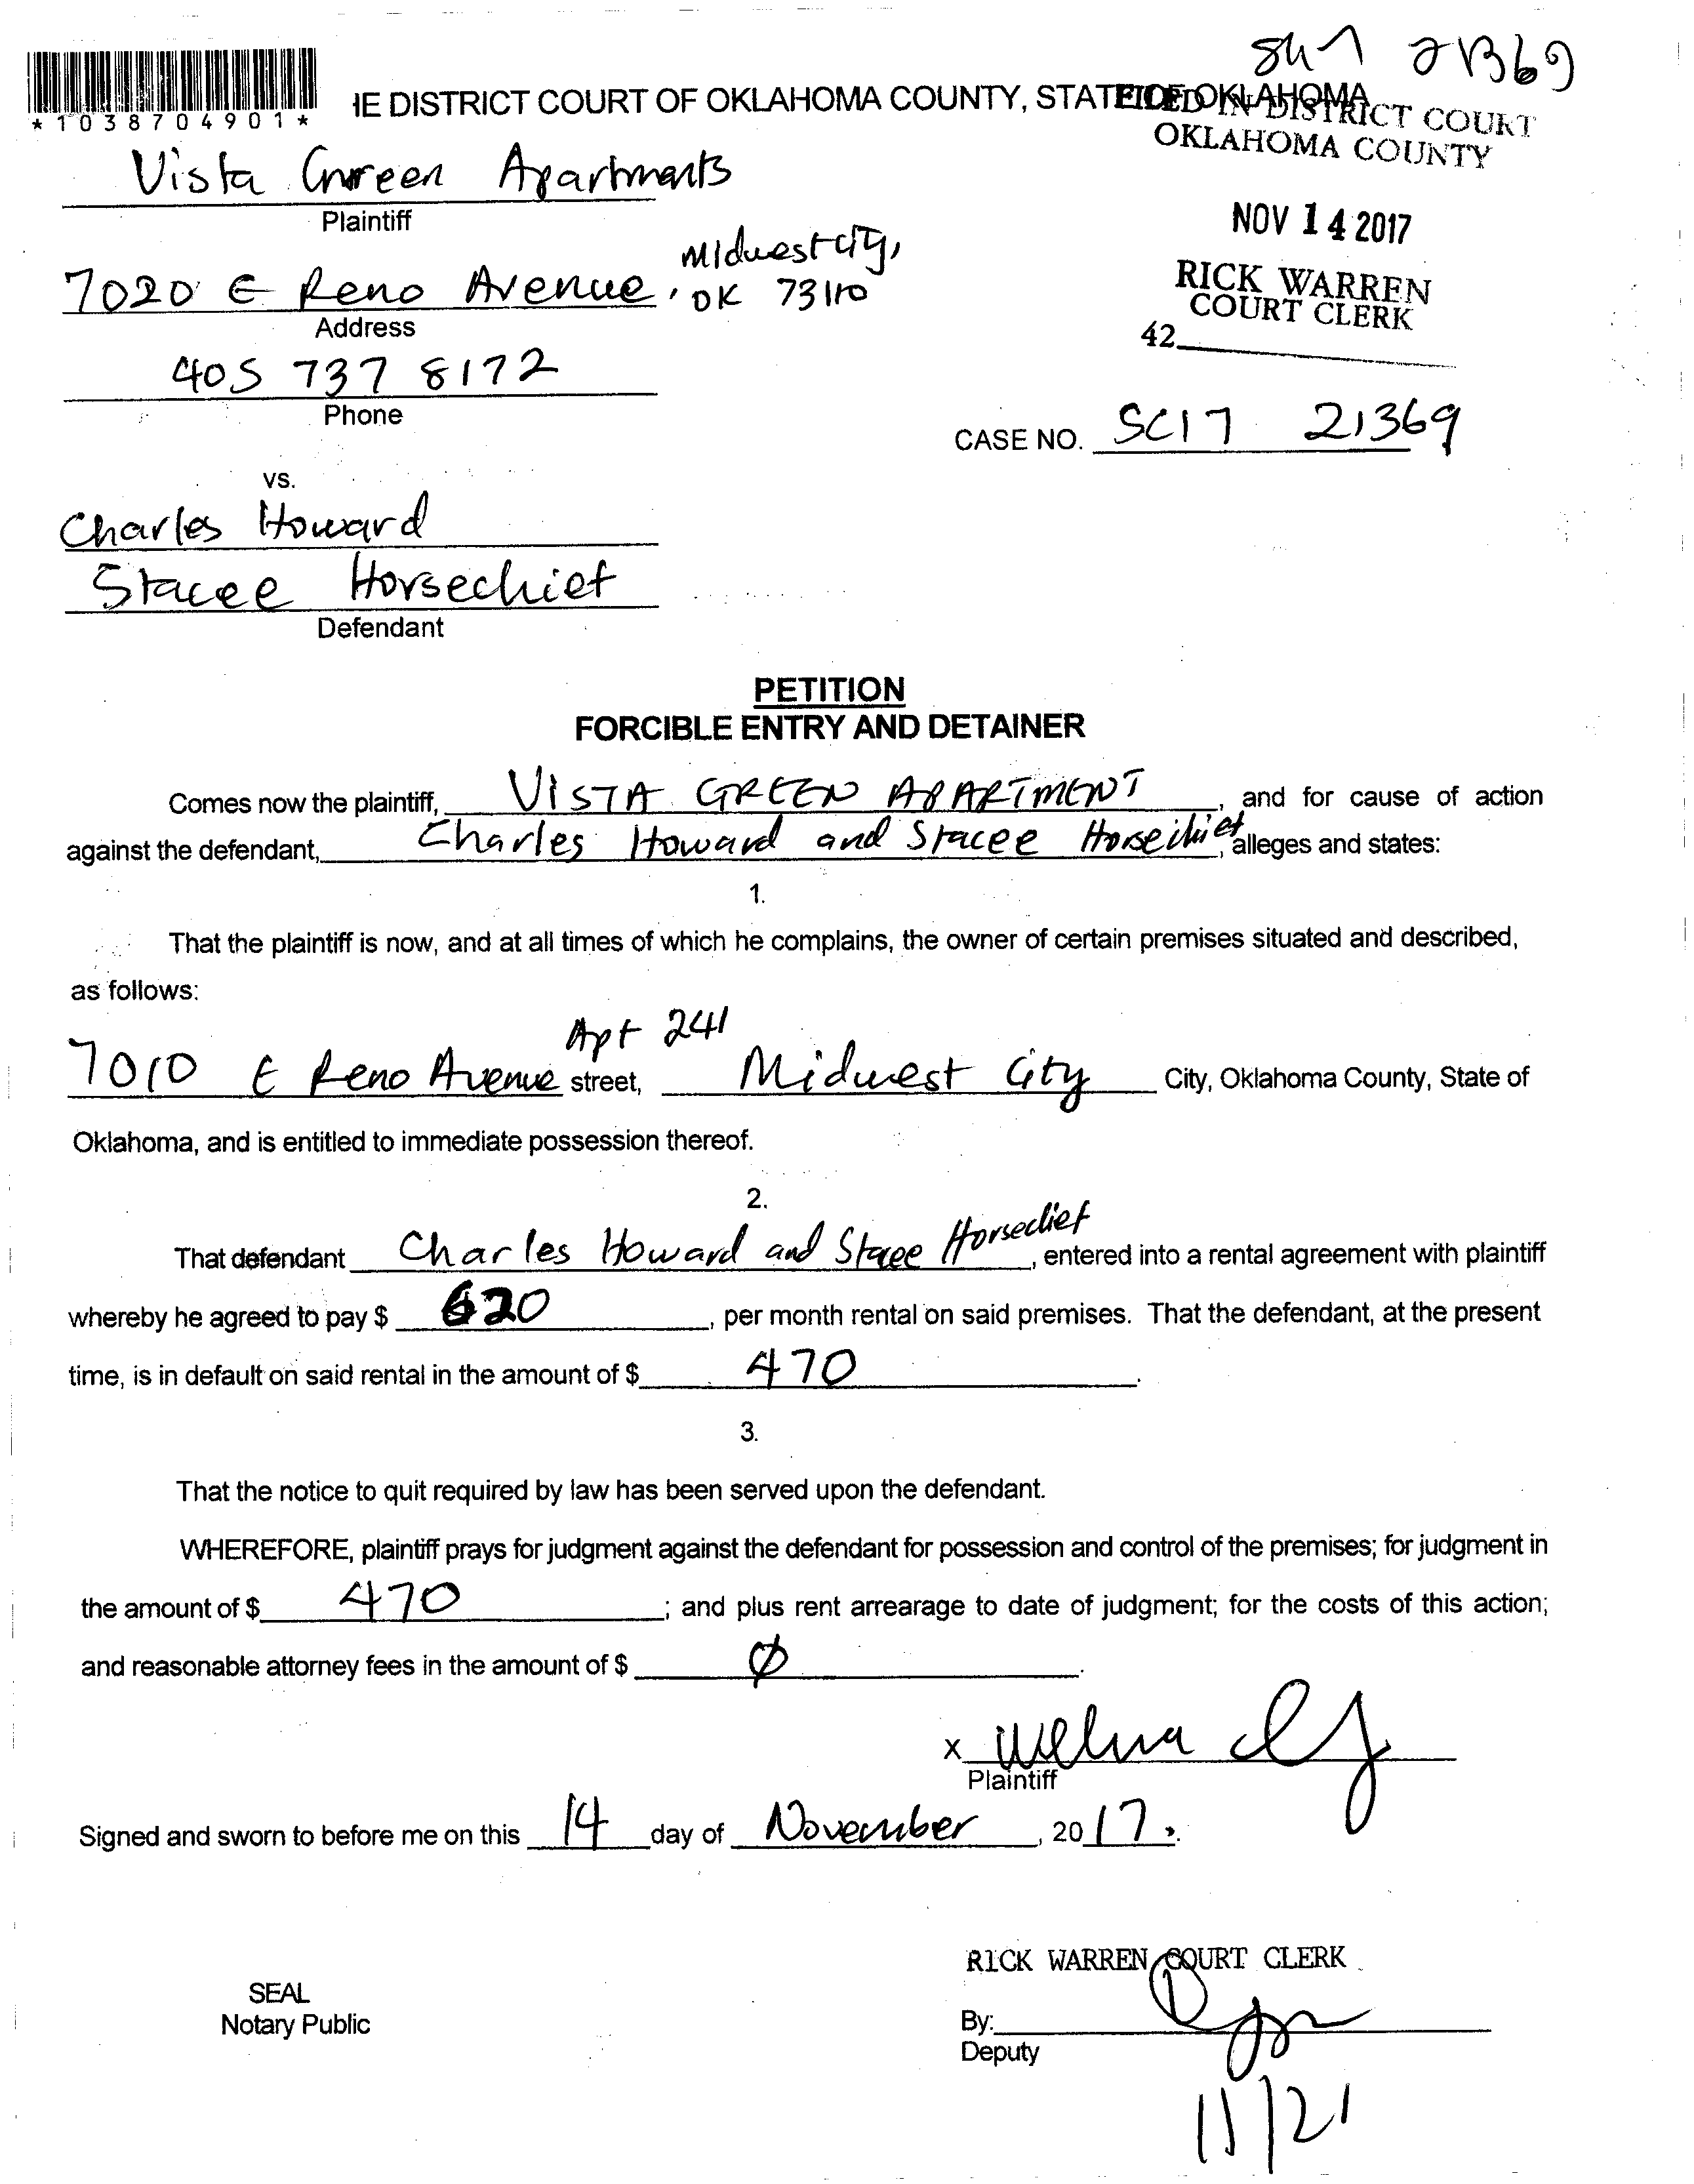 *1038704901*
IE DISTRICT COURT OF OKLAHOMA COUNTY, STATE OF OKLAHOMA
21369
FILED IN DISTRICT COURT
OKLAHOMA COUNTY
Vista Green Apartments
Plaintiff
NOV 14 2017
7020 E Reno Avenue, Midwest city,
OK 73110
Address
RICK WARREN
COURT CLERK
42
405 737 8172
Phone
CASE NO. SC17 21369
vs.
Charles Howard
Stacee Horsechief
Defendant
PETITION
FORCIBLE ENTRY AND DETAINER
Comes now the plaintiff, VISTA GREEN APARTMENT, and for cause of action
against the defendant, Charles Howard and Stacee Horsechief, alleges and states:
1.
That the plaintiff is now, and at all times of which he complains, the owner of certain premises situated and described,
as follows:
7010 E Reno Avenue Apt 241 street, Midwest City City, Oklahoma County, State of
Oklahoma, and is entitled to immediate possession thereof.
2.
That defendant Charles Howard and Stacee Horsechief, entered into a rental agreement with plaintiff
whereby he agreed to pay $ 620, per month rental on said premises. That the defendant, at the present
time, is in default on said rental in the amount of $ 470.
3.
That the notice to quit required by law has been served upon the defendant.
WHEREFORE, plaintiff prays for judgment against the defendant for possession and control of the premises; for judgment in
the amount of $ 470; and plus rent arrearage to date of judgment; for the costs of this action;
and reasonable attorney fees in the amount of $ Ø.
X
Plaintiff
Signed and sworn to before me on this 14 day of November, 2017.
RICK WARREN COURT CLERK
SEAL
Notary Public
By:
Deputy
11/21